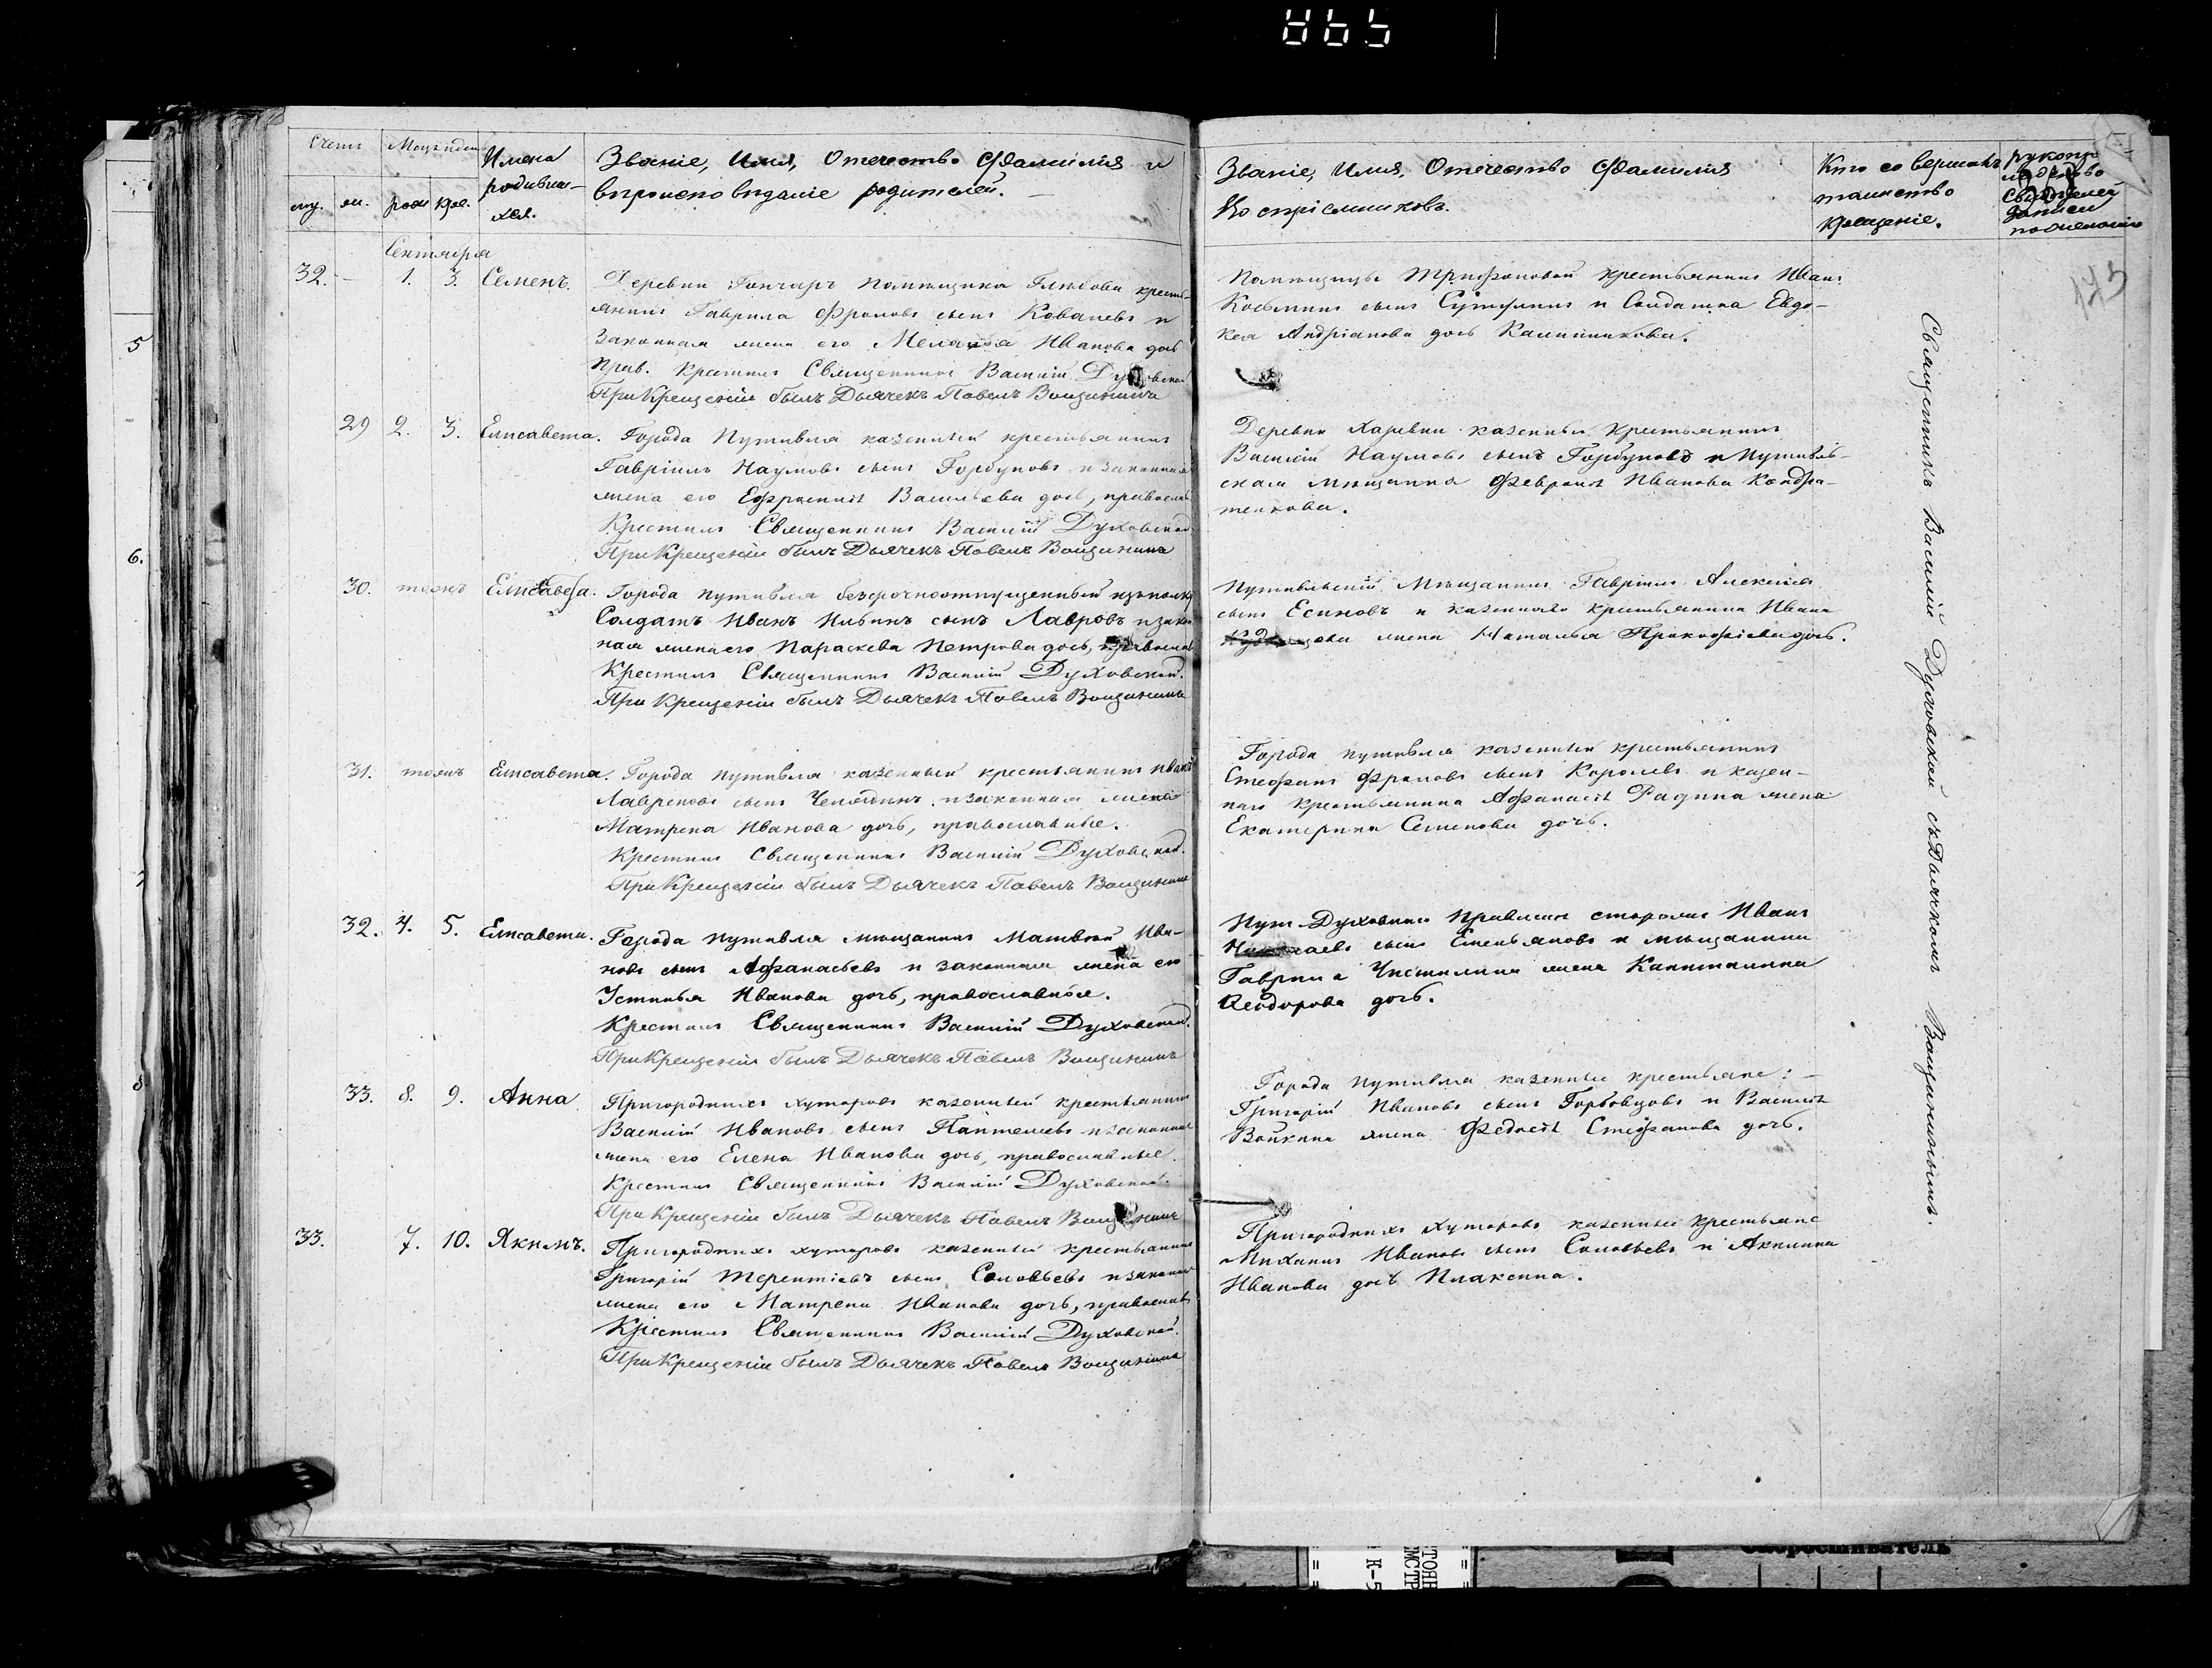 Счетъ
Мѣсяцъ и день
муж.
жен.
рожд.
крещ.
Имена родивших-
ся.
Званіе, Имя, Отечество и Фамилія и
вѣроисповѣданіе родителей.
Сентября
32. — 1. 3. Семенъ.
Деревни Гончаръ помѣщика Глѣбова кресть-
янинъ Гаврила Фроловъ сынъ Ковалевъ и
законная жена его Меланья Иванова дочь
прав. Крестилъ Священникъ Василій Духовской
При Крещеніи былъ Дьячекъ Павелъ Вощининъ
29 2. 3. Елисавета.
Города Путивля казенный крестьянинъ
Гавріилъ Наумовъ сынъ Горбуновъ и законная
жена его Ефросинія Васильева дочь, православ
Крестилъ Священникъ Василій Духовской
При Крещеніи былъ Дьячекъ Павелъ Вощининъ
30. тоежъ Елисавета.
Города Путивля безсрочноотпущенный изъ полку
Солдатъ Иванъ Ильинъ сынъ Лавровъ и закон
ная жена его Параскева Петрова дочь, православ
Крестилъ Священникъ Василій Духовской.
При Крещеніи былъ Дьячекъ Павелъ Вощининъ
31. тоежъ Елисавета.
Города Путивля казенный крестьянинъ Иванъ
сынъ и законная жена
Матрена Иванова дочь, православные.
Крестилъ Священникъ Василій Духовской.
При Крещеніи былъ Дьячекъ Павелъ Вощининъ
32. 4. 5. Елисавета.
Города Путивля мѣщанинъ Матвѣй Ива-
новъ сынъ Афанасьевъ и законная жена его
Устинья Иванова дочь, православные.
Крестилъ Священникъ Василій Духовской.
При Крещеніи былъ Дьячекъ Павелъ Вощининъ
33. 8. 9. Анна
Пригородныхъ хуторовъ казенный крестьянинъ
Василій Ивановъ сынъ Пантелеевъ и законная
жена его Елена Иванова дочь, православные.
Крестилъ Священникъ Василій Духовской.
При Крещеніи былъ Дьячекъ Павелъ Вощининъ
33. 7. 10. Якимъ.
Пригородныхъ хуторовъ казенный крестьянинъ
Григорій Терентіевъ сынъ Соловьевъ и законная
жена его Матрена Иванова дочь, православ
Крестилъ Священникъ Василій Духовской.
При Крещеніи былъ Дьячекъ Павелъ Вощининъ
Званіе, Имя, Отечество и Фамилія
Воспріемниковъ.
Кто совершалъ
таинство
крещенія.
рукопри
свидѣтелей
записи
по желанію
Помѣщицы Трифоновой крестьянинъ Иванъ
Косьминъ сынъ и Солдатка Евдо-
кея Андріанова дочь Калашникова.
Деревни казенный крестьянинъ
Василій Наумовъ сынъ Горбуновъ и Путивль-
ская мѣщанка Февронія Иванова Кондра-
тенкова.
Путивльскій мѣщанинъ Гавріилъ Алексѣевъ
сынъ Есиновъ и казеннаго крестьянина Ивана
жена Наталья Прокофіева дочь.
Города Путивля казенный крестьянинъ
Стефанъ Фроловъ сынъ Королевъ и казен-
наго крестьянина Афанасія Радина жена
Екатерина Семенова дочь.
Пут. Духовнаго Правленія сторожъ Иванъ
Николаевъ сынъ Емельяновъ и мѣщанина
Гаврила Чистилина жена Капиталина
Ѳеодорова дочь.
Города Путивля казенные крестьяне: —
Григорій Ивановъ сынъ Горбовцовъ и Василія
Войкина жена Федосія Стефанова дочь.
Пригородныхъ хуторовъ казенные крестьяне
Михаилъ Ивановъ сынъ Соловьевъ и Акилина
Иванова дочь Плаксина.
Священникъ Василій Духовской съ Дьячкомъ Вощининымъ.
5
6.
8